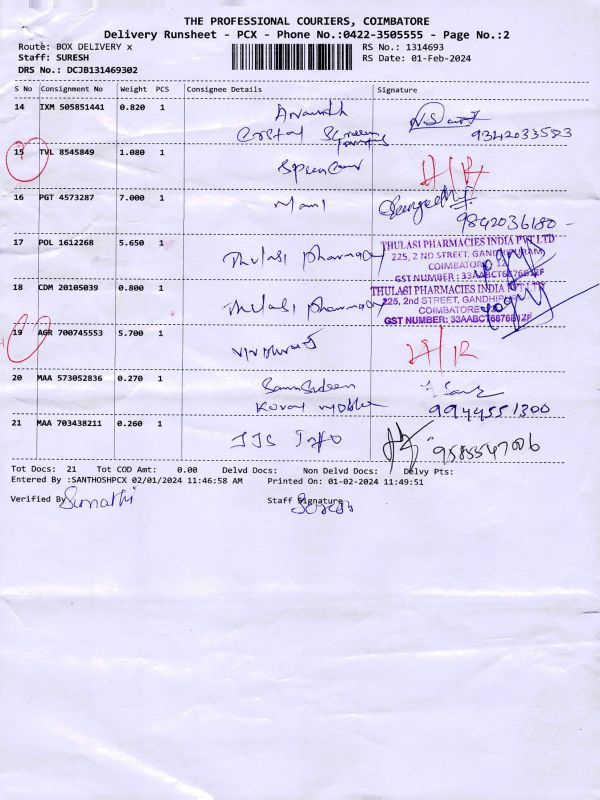 THE PROFESSIONAL COURIERS, COIMBATORE
Delivery Runsheet - PCX - Phone No.:0422-3505555 - Page No.:2
Route: BOX DELIVERY x
RS No.: 1314693
Staff: SURESH
RS Date: 01-Feb-2024
DRS No.: DCJB131469302
S No Consignment No Weight PCS Consignee Details Signature
14 IXM 505851441 0.820 1
9342033583
15 TVL 8545849 1.080 1
16 PGT 4573287 7.000 1 Mani Sangeetha
9842036180
17 POL 1612268 5.650 1 Thulasi pharmacy
THULASI PHARMACIES INDIA PVT LTD
225, 2 ND STREET, GANDHIPURAM
COIMBATORE
GST NUMBER : 33AABCT6876B1ZF
18 CDM 20105039 0.800 1 Thulasi pharmacy
THULASI PHARMACIES INDIA
225, 2nd STREET, GANDHIPUR
COIMBATORE
GST NUMBER: 33AABCT6876B1ZF
19 AGR 700745553 5.700 1
20 MAA 573052836 0.270 1
Kovai Mobile 9944551300
21 MAA 703438211 0.260 1 JJS Info
Tot Docs: 21 Tot COD Amt: 0.00 Delvd Docs: Non Delvd Docs: Delvy Pts:
Entered By :SANTHOSHPCX 02/01/2024 11:46:58 AM Printed On: 01-02-2024 11:49:51
Verified By Sumathi Staff Signature Suresh